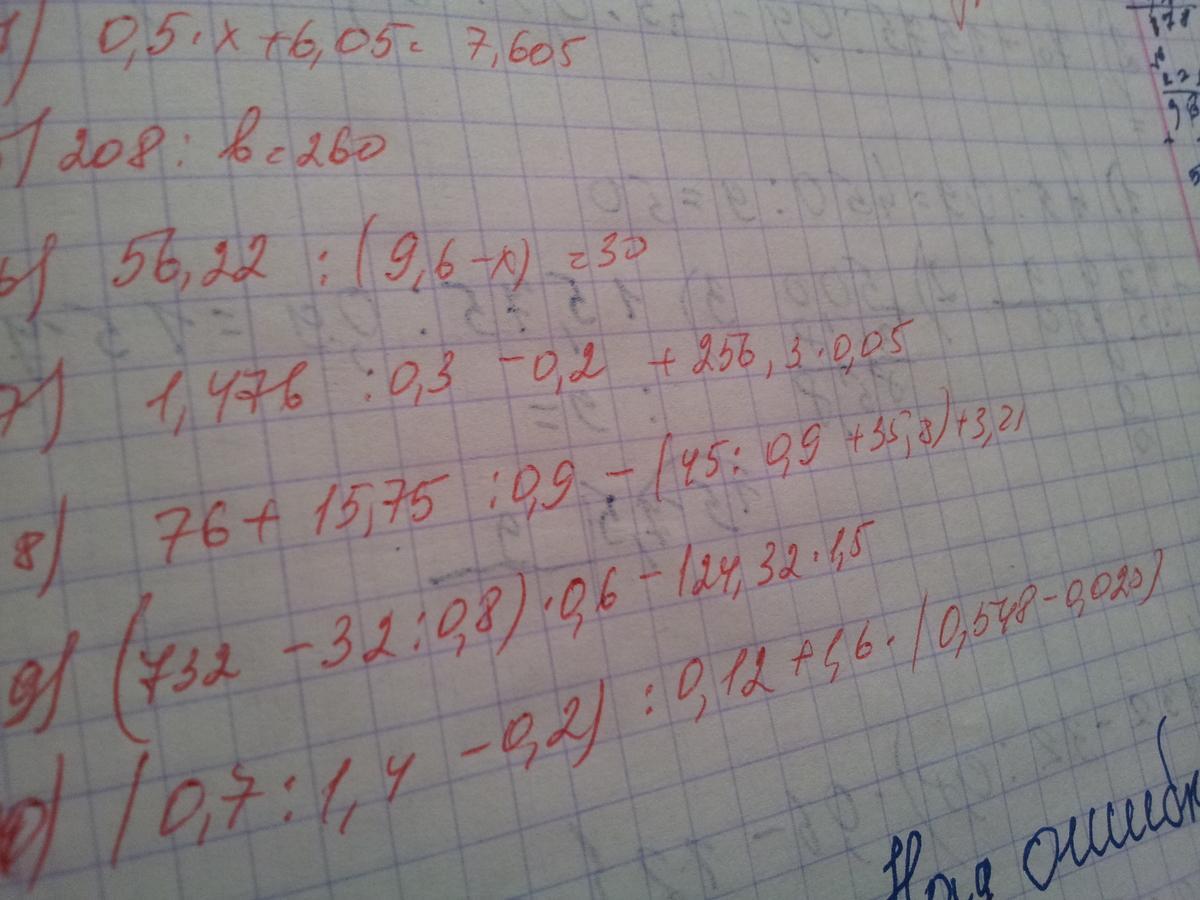 4) 0,5·x+6,05= 7,605
5) 208 : b=260
6) 56,22 : (9,6-x) =30
7) 1,476 :0,3 -0,2 +256,3·0,05
8) 76+ 15,75 :0,9 -(45: 0,9 +35,8)+3,21
9) (732 -32:0,8)·0,6-124,32·1,5
10) (0,7:1,4 -0,2) :0,12+1,6·(0,548-0,023)
Над ошибк